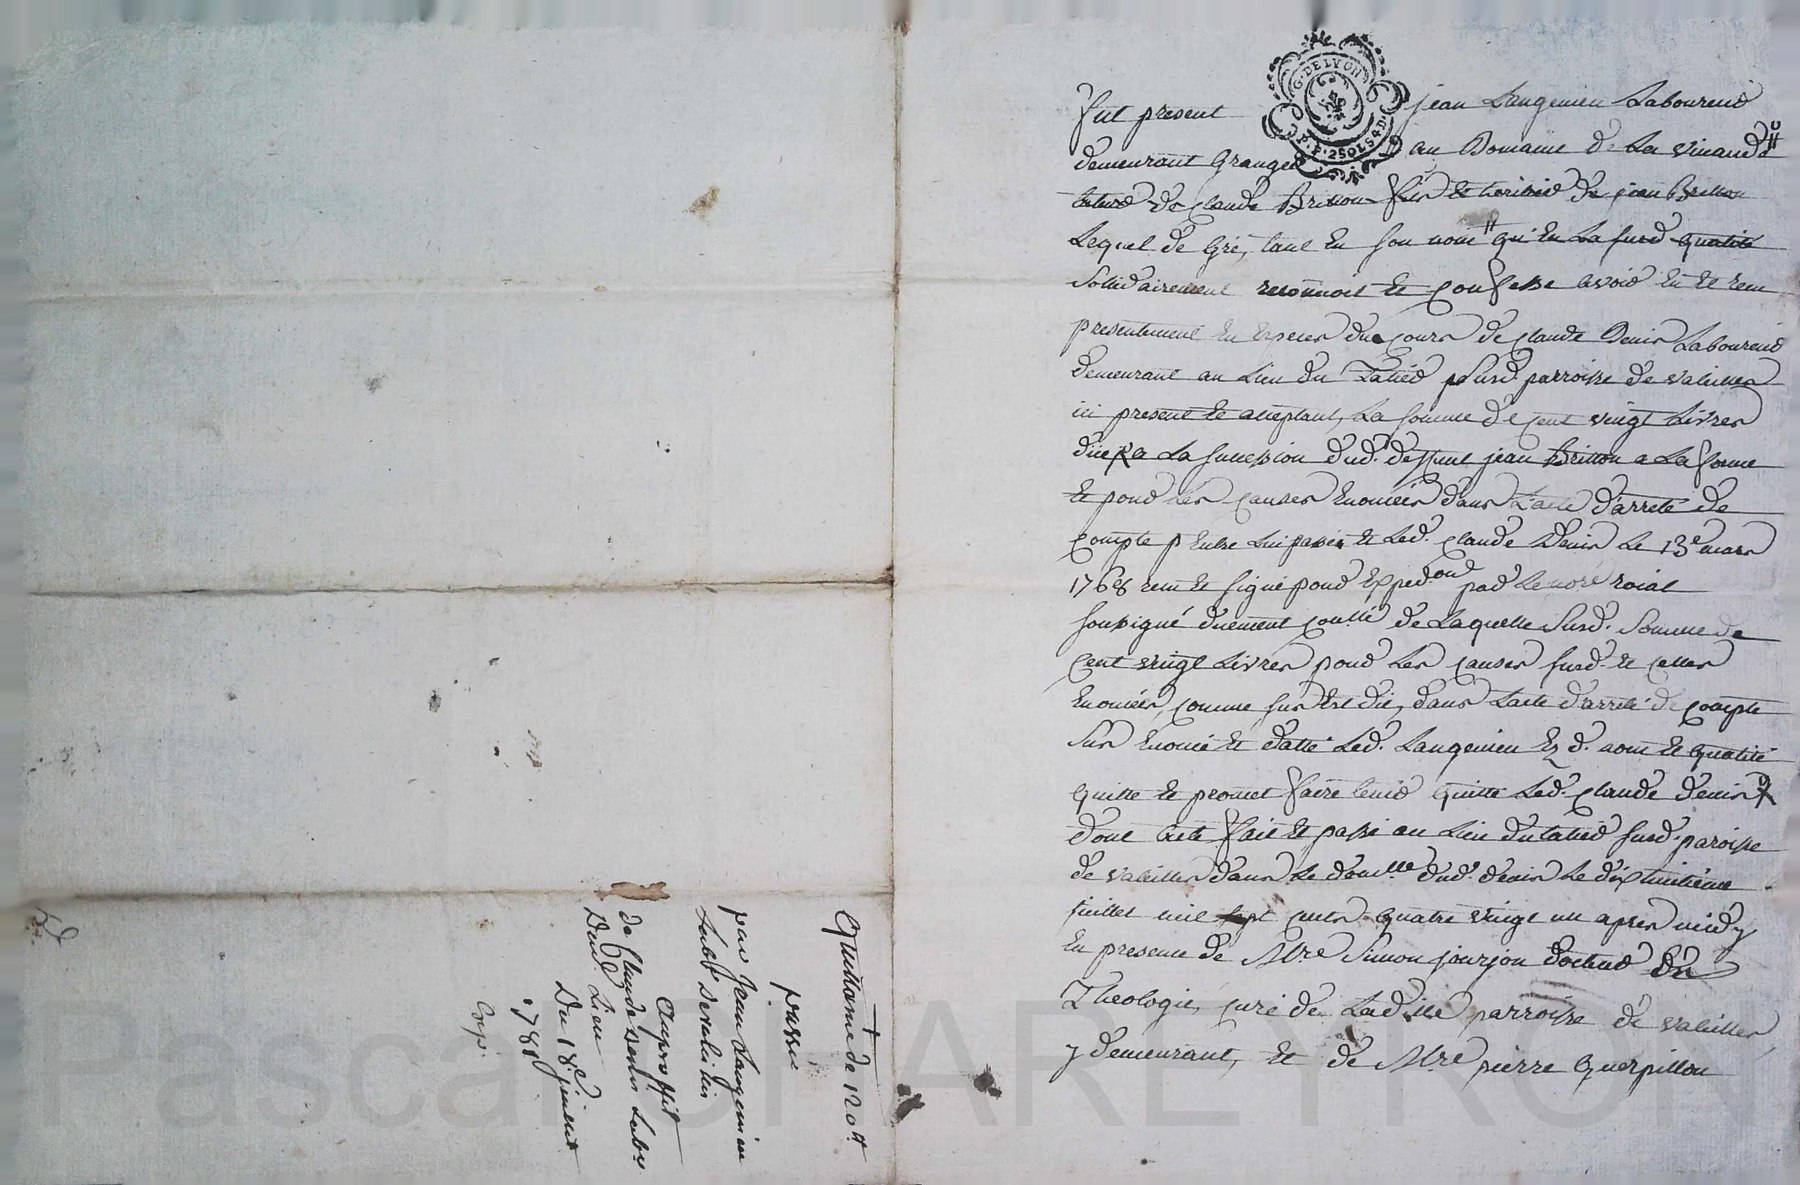 G. DE LYON
P. P. 2 SOLS 4 D.
fut present jean Langenieu Laboureur
demeurant Granger au Domaine de La
de claude Brisson fils et heritier de jean Brisson
Lequel de Gré, tant En son nom qu'En La susd. qualité
Solidairement reconnoit Et confesse avoir Eu Et recu
presentement En Especes du cours de claude Denis Laboureur
demeurant au Lieu du susd. parroisse de valeilles
ici present Et acceptant, La somme de cent vingt Livres
düe a La succession dud. deffunt jean Brisson a La forme
Et pour Les causes Enoncées dans L'acte d'arreté de
compte Entre Lui passé Et Led. claude Denis Le 13e mars
1768 recu Et signé pour Exped.on par Le nore roial
soussigné duement de Laquelle susd. Somme de
cent vingt Livres pour Les causes susd. Et celles
Enoncées, comme sus Est dit, dans L'acte d'arreté de compte
Sus Enoncé Et datté Led. Langenieu Ez d. nom Et qualité
quitte Et promet faire tenir quitte Led. claude denis
dont acte fait Et passé au Lieu susd. paroisse
de valeilles dans Le domlle dud. denis Le dixhuitieme
juillet mil sept cents quatre vingt un apres midy
En presence de Mre Simon jourjon docteur En
Theologie, curé de Ladite parroisse de valeilles
y demeurant, Et de Mre pierre Guerpillon
Quittance de 120tt
passée
par Jean Langenieu
Labr de valeilles
Au proffit
de Claude denis Labr
Dud. Lieu
Du 18e juillet
1781
Exp.
Pascal CHAREYRON